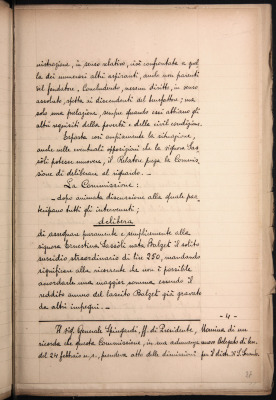 nistrazione, in senso relativo, cioè confrontata a quel
la dei numerosi altri aspiranti, anche non parenti
del fondatore. Concludendo, nessun diritto, in senso
assoluto, spetta ai discendenti del benefattore; ma
solo una prelazione, sempre quando essi abbiano gli
altri requisiti della povertà e della civil condizione.
Esposta così ampiamente la situazione,
anche nelle eventuali opposizioni che la signora Gas
sòli potesse muovere, il Relatore prega la Commis=
sione di deliberare al riguardo. _
La Commissione:
- dopo animata discussione alla quale par=
tecipano tutti gli intervenuti;
delibera
di assegnare puramente e semplicemente alla
signora Ernestina Gassòli nata Balzet il solito
sussidio straordinario di lire 250, mandando
significare alla ricorrente che non è possibile
accordarle una maggior somma essendo il
reddito annuo del lascito Balzet già gravato
da altri impegni. _
- 4 -
Il Sig. Generale Spingardi, ff. di Presidente,
ricorda che questa Commissione, in una adunanza
del 24 febbraio u. s., prendeva atto delle dimissioni